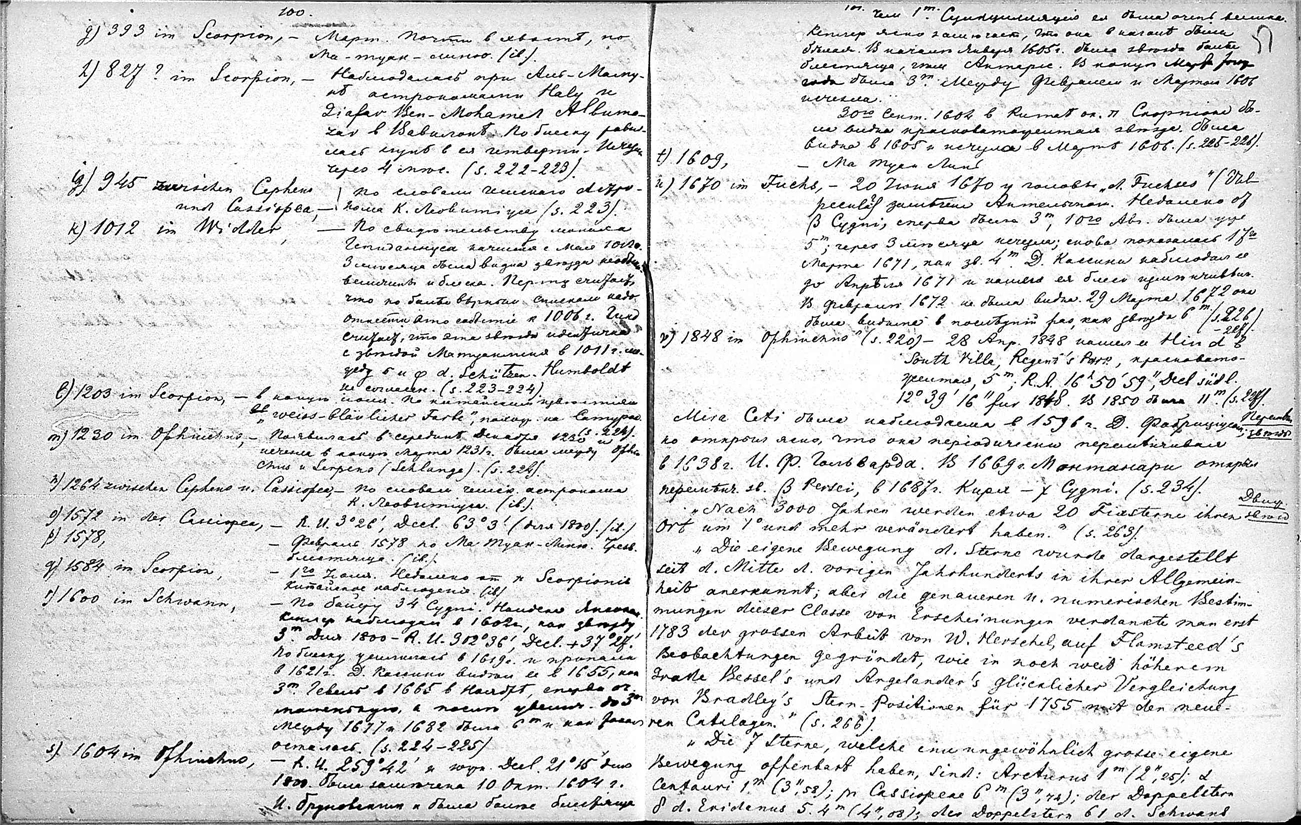 100.
g) 393 im Scorpion, – Март. Почти в хвосте, по
Ма-туан-линю. (ib).
h) 827? im Scorpion, – Наблюдалась при Аль-Маму-
нѣ астрономами Haly и
Djafar Ben-Mohamed Albuma-
zar в Вавилонѣ. По блеску равня-
лась лунѣ в ея четверти. Исчезла
через 4 мѣс. (s. 222-223).
i) 945 zwischen Cepheus
und Cassiopea, –
по словам чешскаго астро-
нома К. Леовитіуса (s. 223).
k) 1012 im Widder, – По свидѣтельству монаха
Гепидануса начиная с Мая 1012
3 мѣсяца была видна звѣзда
величины и блеска.
что по болѣе вѣрным спискам надо
отнести это событіе к 1006 г. Гинд
считает, что эта звѣзда идентична
с звѣздой Матуанлина в 1011 г.
между σ и φ d. Schützen. Humboldt
не согласен. (s. 223-224).
l) 1203 im Scorpion, – в концѣ іюля. По китайским
"weiss-bläulicher Farbe", похож. на Сатурна
(s. 224).
m) 1230 im Ophiuchus, – Появилась в серединѣ Декабря 1230 и
исчезла в концѣ Марта 1231. Была между Ophiu-
chus и Serpens (Schlange). (s. 224).
n) 1264 zwischen Cepheus u. Cassiopea, – по словам чешск. астронома
К. Леовитіуса. (ib).
o) 1572 in der Cassiopea, – R. A. 3°26', Decl. 63°3' (для 1800). (ib)
p) 1578, – Февраль 1578 по Ма-Туан-Линю.
блестящая. (ib).
q) 1584 im Scorpion, – 1го Іюля. Недалеко от π Scorpionis
китайское наблюденіе. (ib)
r) 1600 im Schwann, – По Байеру 34 Cygni. Найдена Янсоном.
Кеплер наблюдал в 1602, как звѣзду
3m. Для 1800 – R. A. 302°36', Decl. +37°27'.
По блеску уменьшалась в 1619 г. и пропала
в 1621 г. Д. Кассини видѣл ее в 1655, как
3m. Гевель в 1665 в Ноябрѣ, сперва
а потом до 3m
Между 1677 и 1682 была 6m и как такая
осталась. (s. 224-225).
s) 1604 im Ophiuchus, – R. A. 259°42' и юж. Decl. 21°15' для
1800. Была замѣчена 10 Окт. 1604 г.
И. Бруновским и была болѣе блестяща
101. чем 1m. Сцинцилляція ея была очень велика.
Кеплер ясно замѣчает, что она в началѣ была
бѣлая. В началѣ Января 1605 г. была звѣзда болѣе
блестяща, чем Антарес. В концѣ Марта
года была 3m. Между Февралем и Мартом 1606
исчезла.
30го Сент. 1604 в Китаѣ ок. π Скорпіона бы-
ла видна красноватожелтая звѣзда. Была
видна в 1605 и исчезла в Мартѣ 1606. (s. 225-226).
t) 1609, – Ма Туан Линь
u) 1670 im Fuchs, – 20 Іюня 1670 у головы "d. Fuchses" (Vul-
peculae) замѣчен Антельмом. Недалеко от
β Cygni, сперва была 3m, 10го Авг. была уже
5m, через 3 мѣсяца исчезла; снова показалась 17го
Марта 1671, как зв. 4m. Д. Кассини наблюдал ее
до Апрѣля 1671 и нашел ея блеск измѣнчивым.
В Февралѣ 1672 не была видна. 29 Марта 1672 она
была видима в послѣдній раз, как звѣзда 6m (s. 226
-227).
v) 1848 im Ophiuchus (s. 220) – 28 Апр. 1848 нашел ее Hind в
South Villa, Regent's Parc, красновато-
желтая, 5m; R. A. 16h 50' 59", Decl südl.
12° 39' 16" für 1848. В 1850 была 11m (s. 227).
Mira Ceti была наблюдаема в 1596 г. Д. Фабриціусом,
но открыл ясно, что она періодически перемѣнчивая
в 1638 г. И. Ф. Гольварда. В 1669 г. Монтанари открыл
перемѣн. зв. β Persei, в 1687 г. Кирх – χ Cygni. (s. 234).
Перемѣн.
звѣзды
"Nach 3000 Jahren werden etwa 20 Fixsterne ihren
Ort um 1° und mehr verändert haben." (s. 263).
Движ.
звѣзд
"Die eigene Bewegung d. Sterne wurde dargestellt
seit d. Mitte d. vorigen Jahrhunderts in ihrer Allgemein-
heit anerkannt; aber die genaueren u. numerischen Bestim-
mungen dieser Classe von Erscheinungen verdankte man erst
1783 der grossen Arbeit von W. Herschel, auf Flamsteed's
Beobachtungen gegründet, wie in noch weit höherem
Grade Bessel's und Argelander's glücklicher Vergleichung
von Bradley's Stern-Positionen für 1755 mit den neue-
ren Catalogen." (s. 266).
"Die 7 Sterne, welche eine ungewöhnlich grosse eigene
Bewegung offenbart haben, sind: Arcturus 1m (2",25); α
Centauri 1m (3",58); μ Cassiopeae 6m (3",74); der Doppelstern
δ d. Eridanus 5.4m (4",08); der Doppelstern 61 d. Schwans